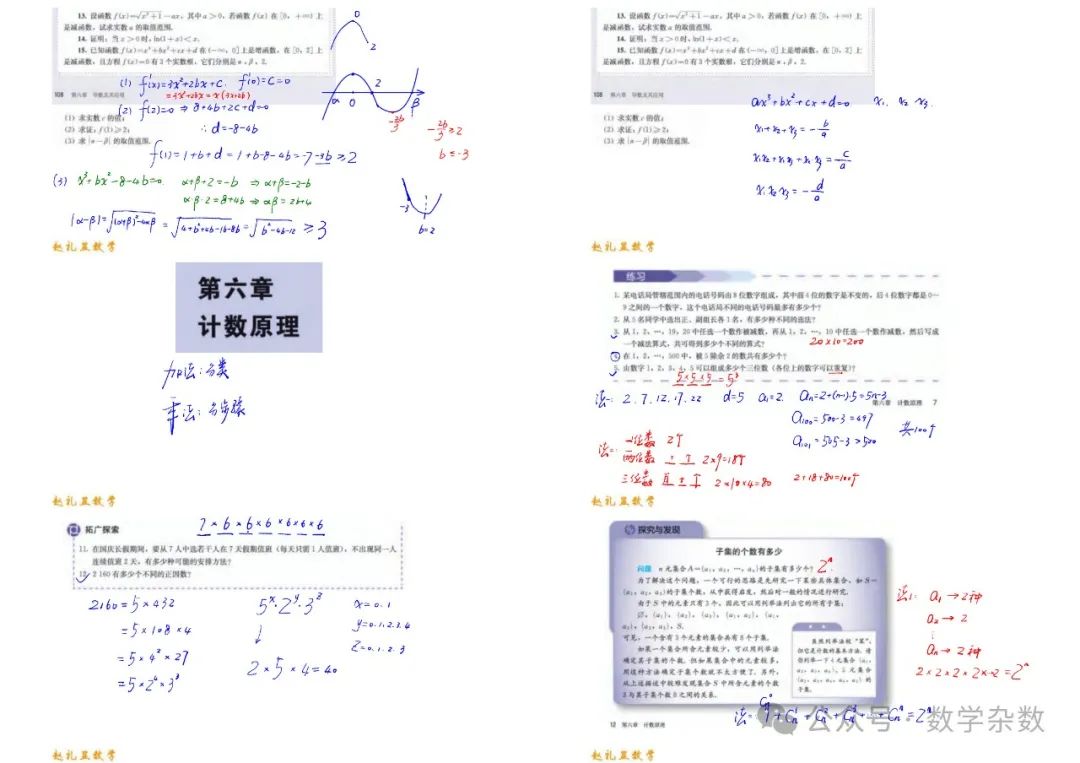 13. 设函数 f(x)=√(x²+1)−ax, 其中 a>0, 若函数 f(x) 在 [0, +∞) 上
是减函数, 试求实数 a 的取值范围.
14. 证明: 当 x>0 时, ln(1+x)<x.
15. 已知函数 f(x)=x³+bx²+cx+d 在(−∞, 0]上是增函数, 在 [0, 2] 上
是减函数, 且方程 f(x)=0 有 3 个实数根, 它们分别是 α, β, 2.
108 第六章 导数及其应用
(1) 求实数 c 的值;
(2) 求证: f(1)≥2;
(3) 求 |α−β| 的取值范围.
0
2
(1) f'(x)=3x²+2bx+c. f'(0)=c=0
=3x²+2bx=x(3x+2b)
(2) f(2)=0 ⇒ 8+4b+2c+d=0
∴d=-8-4b
f(1)=1+b+d=1+b-8-4b=-7-3b≥2
α 0 2 β
-2b/3
-2b/3≥2
b≤-3
(3) x³+bx²-8-4b=0. α+β+2=-b ⇒α+β=-2-b
α·β·2=8+4b ⇒αβ=2b+4
|α-β|=√((α+β)²-4αβ)=√(4+b²+4b-16-8b)=√(b²-4b-12)≥3
-3
b=2
赵礼显数学
13. 设函数 f(x)=√(x²+1)−ax, 其中 a>0, 若函数 f(x) 在 [0, +∞) 上
是减函数, 试求实数 a 的取值范围.
14. 证明: 当 x>0 时, ln(1+x)<x.
15. 已知函数 f(x)=x³+bx²+cx+d 在(−∞, 0]上是增函数, 在 [0, 2] 上
是减函数, 且方程 f(x)=0 有 3 个实数根, 它们分别是 α, β, 2.
108 第六章 导数及其应用
(1) 求实数 c 的值;
(2) 求证: f(1)≥2;
(3) 求 |α−β| 的取值范围.
ax³+bx²+cx+d=0 x₁ x₂ x₃.
x₁+x₂+x₃=-b/a
x₁x₂+x₁x₃+x₂x₃=c/a
x₁x₂x₃=-d/a
赵礼显数学
第六章
计数原理
加法:分类
乘法:分步骤
赵礼显数学
练习
1. 某电话局管辖范围内的电话号码由8位数字组成, 其中前4位的数字是不变的, 后4位数字都是0~
9之间的一个数字, 这个电话局不同的电话号码最多有多少个?
2. 从5名同学中选出正、副组长各1名, 有多少种不同的选法?
3. 从1, 2, …, 19, 20中任选一个数作被减数, 再从1, 2, …, 10中任选一个数作减数, 然后写成
一个减法算式, 共可得到多少个不同的算式?
20×10=200
4. 在1, 2, …, 500中, 被5除余2的数共有多少个?
5. 由数字1, 2, 3, 4, 5可以组成多少个三位数 (各位上的数字可以重复)?
5×5×5=5³
第六章 计数原理 7
法一: 2.7.12.17.22 d=5 a₁=2. aₙ=2+(n-1)·5=5n-3
a₁₀₀=500-3=497
a₁₀₁=505-3>500
共100个
法二: 一位数 2个
两位数 2×9=18个
三位数 2×10×4=80 2+18+80=100个
赵礼显数学
拓广探索
7×6×6×6×6×6×6
11. 在国庆长假期间, 要从7人中选若干人在7天假期值班 (每天只需1人值班), 不出现同一人
连续值班2天, 有多少种可能的安排方法?
12. 2 160有多少个不同的正因数?
2160=5×432
=5×108×4
=5×4²×27
=5×2⁴×3³
5ˣ·2ʸ·3ᶻ
2×5×4=40
x=0.1
y=0.1.2.3.4
z=0.1.2.3
赵礼显数学
探究与发现
子集的个数有多少
问题 n元集合A={a₁, a₂, …, aₙ}的子集有多少个? 2ⁿ.
为了解决这个问题, 一个可行的思路是先研究一下某些具体集合, 如S=
{a₁, a₂, a₃}的子集个数, 从中获得启发, 然后对一般的情况进行研究.
由于S中的元素只有3个, 因此可以用列举法列出它的所有子集:
∅, {a₁}, {a₂}, {a₃}, {a₁, a₂}, {a₁,
a₃}, {a₂, a₃}, S.
可见, 一个含有3个元素的集合共有8个子集.
如果一个集合所含元素较少, 可以用列举法
确定其子集的个数. 但如果集合中的元素较多,
用这种方法确定子集个数就很不方便了. 另外,
从上述描述中较难发现集合S中所含元素的个数
3与其子集个数8之间的关系.
虽然列举法较“笨”,
但它是计数的基本方法. 请
你列举一下4元集合{a₁,
a₂, a₃, a₄}, 5元集合
{a₁, a₂, a₃, a₄, a₅}的
子集.
12 第六章 计数原理
法1: a₁→2种
a₂→2
aₙ→2种
2×2×2×2×…2=2ⁿ
法二: Cₙ⁰+Cₙ¹+Cₙ²+Cₙ³+…+Cₙⁿ=2ⁿ
公众号·数学杂数
赵礼显数学